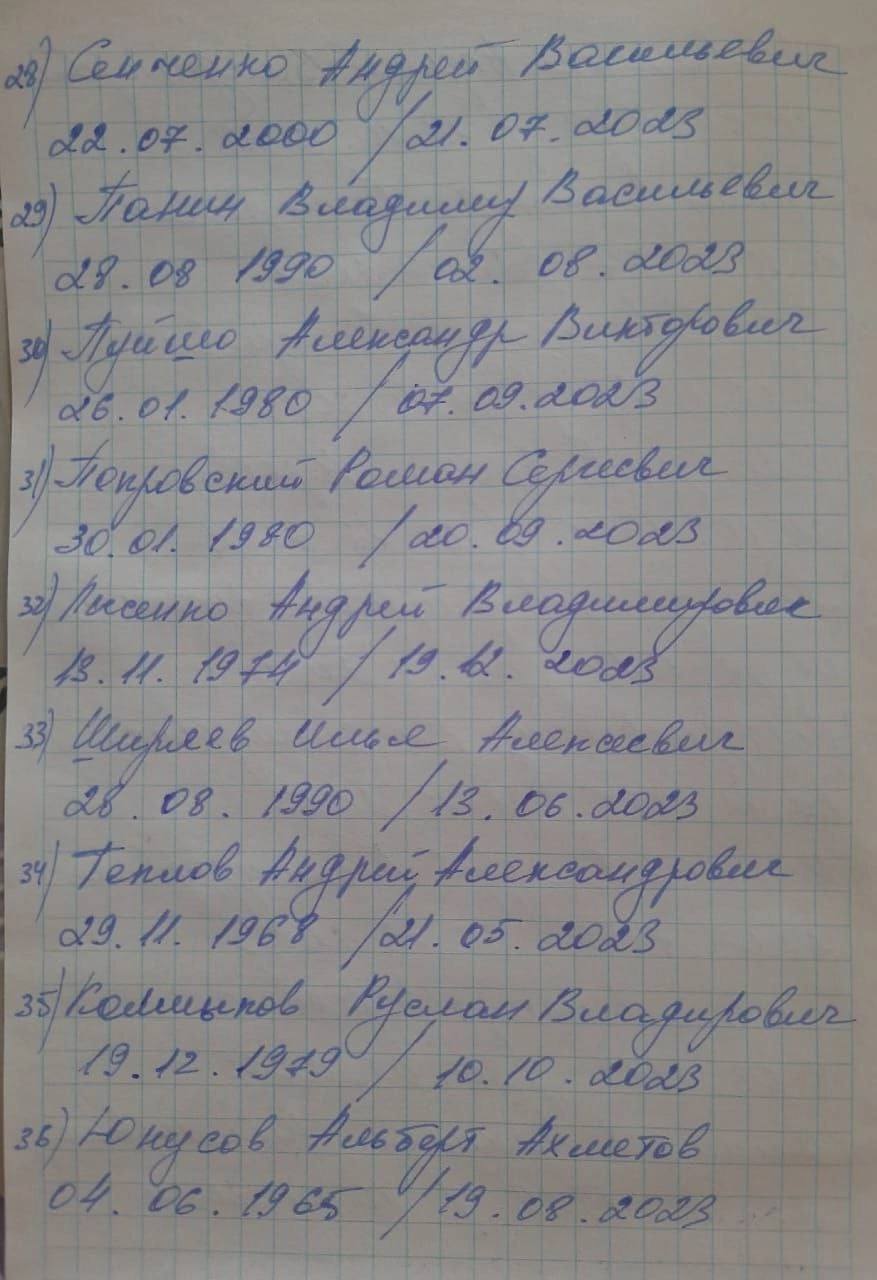 28) Сенченко Андрей Васильевич
22.07.2000 / 21.07.2023
29) Панин Владимир Васильевич
28.08 1990 / 02.08.2023
30) Пуйшо Александр Викторович
26.01.1980 / 07.09.2023
31) Покровский Роман Сергеевич
30.01.1980 / 20.09.2023
32) Лысенко Андрей Владимирович
13.11.1974 / 19.12.2023
33) Ширяев Илья Алексеевич
28.08.1990 / 13.06.2023
34) Теплов Андрей Александрович
29.11.1968 / 21.05.2023
35) Руслан Владирович
19.12.1979 / 10.10.2023
36) Юнусов Альберт Ахметов
04.06.1965 / 19.08.2023